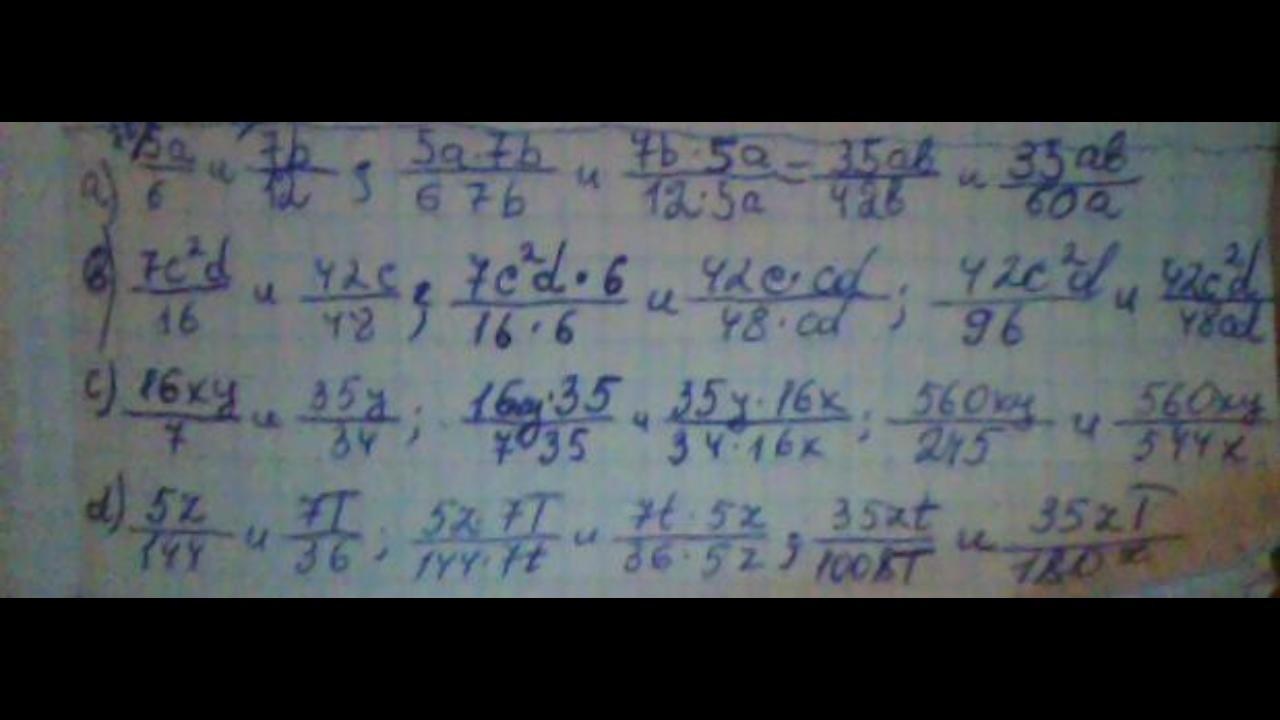 a) 5a/6 и 7b/12 ; 5a 7b/6 7b и 7b·5a/12·5a = 35ab/42b и 35ab/60a
b) 7c²d/16 и 42c/48 ; 7c²d·6/16·6 и 42c·cd/48·cd ; 42c²d/96 и 42c²d/48cd
c) 16xy/7 и 35y/34 ; 16xy·35/7·35 и 35y·16x/34·16x ; 560xy/245 и 560xy/544x
d) 5z/144 и 7T/36 ; 5z·7T/144·7t и 7t·5z/36·5z ; 35zt/1008T и 35zT/180z